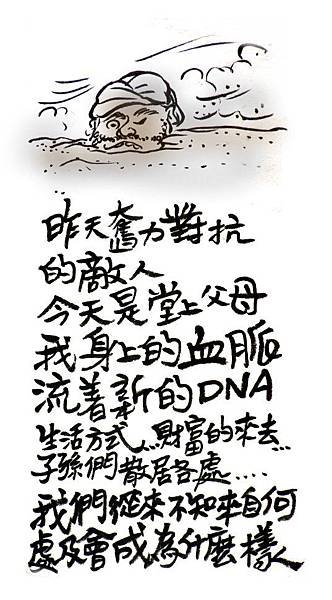 昨天奮力對抗
的敵人
今天是堂上父母
我身上的血脈
流着新的DNA
生活方式...財富的來去...
子孫們散居各處....
我們從來不知來自何
處及會成為什麼樣